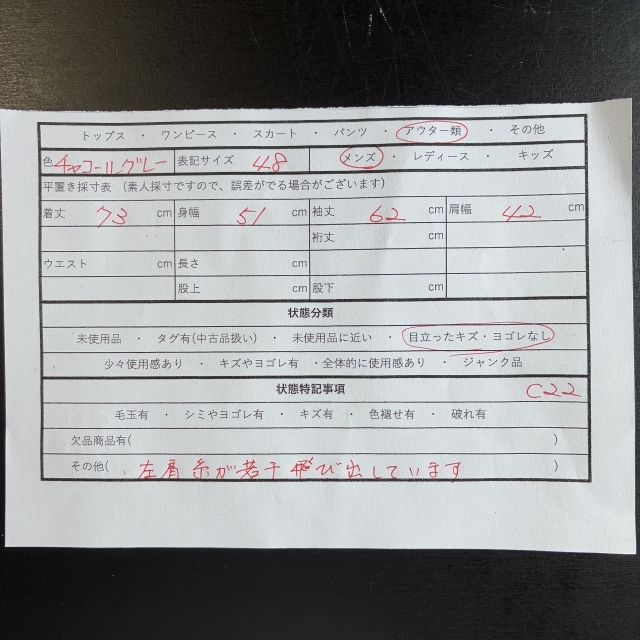 トップス ・ ワンピース ・ スカート ・ パンツ ・ アウター類 ・ その他
色 チャコールグレー 表記サイズ 48 メンズ ・ レディース ・ キッズ
平置き採寸表 （素人採寸ですので、誤差がでる場合がございます）
着丈 73 cm 身幅 51 cm 袖丈 62 cm 肩幅 42 cm
裄丈 cm
ウエスト cm 長さ cm
股上 cm 股下 cm
状態分類
未使用品 ・ タグ有(中古品扱い) ・ 未使用品に近い ・ 目立ったキズ・ヨゴレなし
少々使用感あり ・ キズやヨゴレ有 ・全体的に使用感あり ・ ジャンク品
状態特記事項 C22
毛玉有 ・ シミやヨゴレ有 ・ キズ有 ・ 色褪せ有 ・ 破れ有
欠品商品有( )
その他( 左肩 糸が若干 飛び出しています )